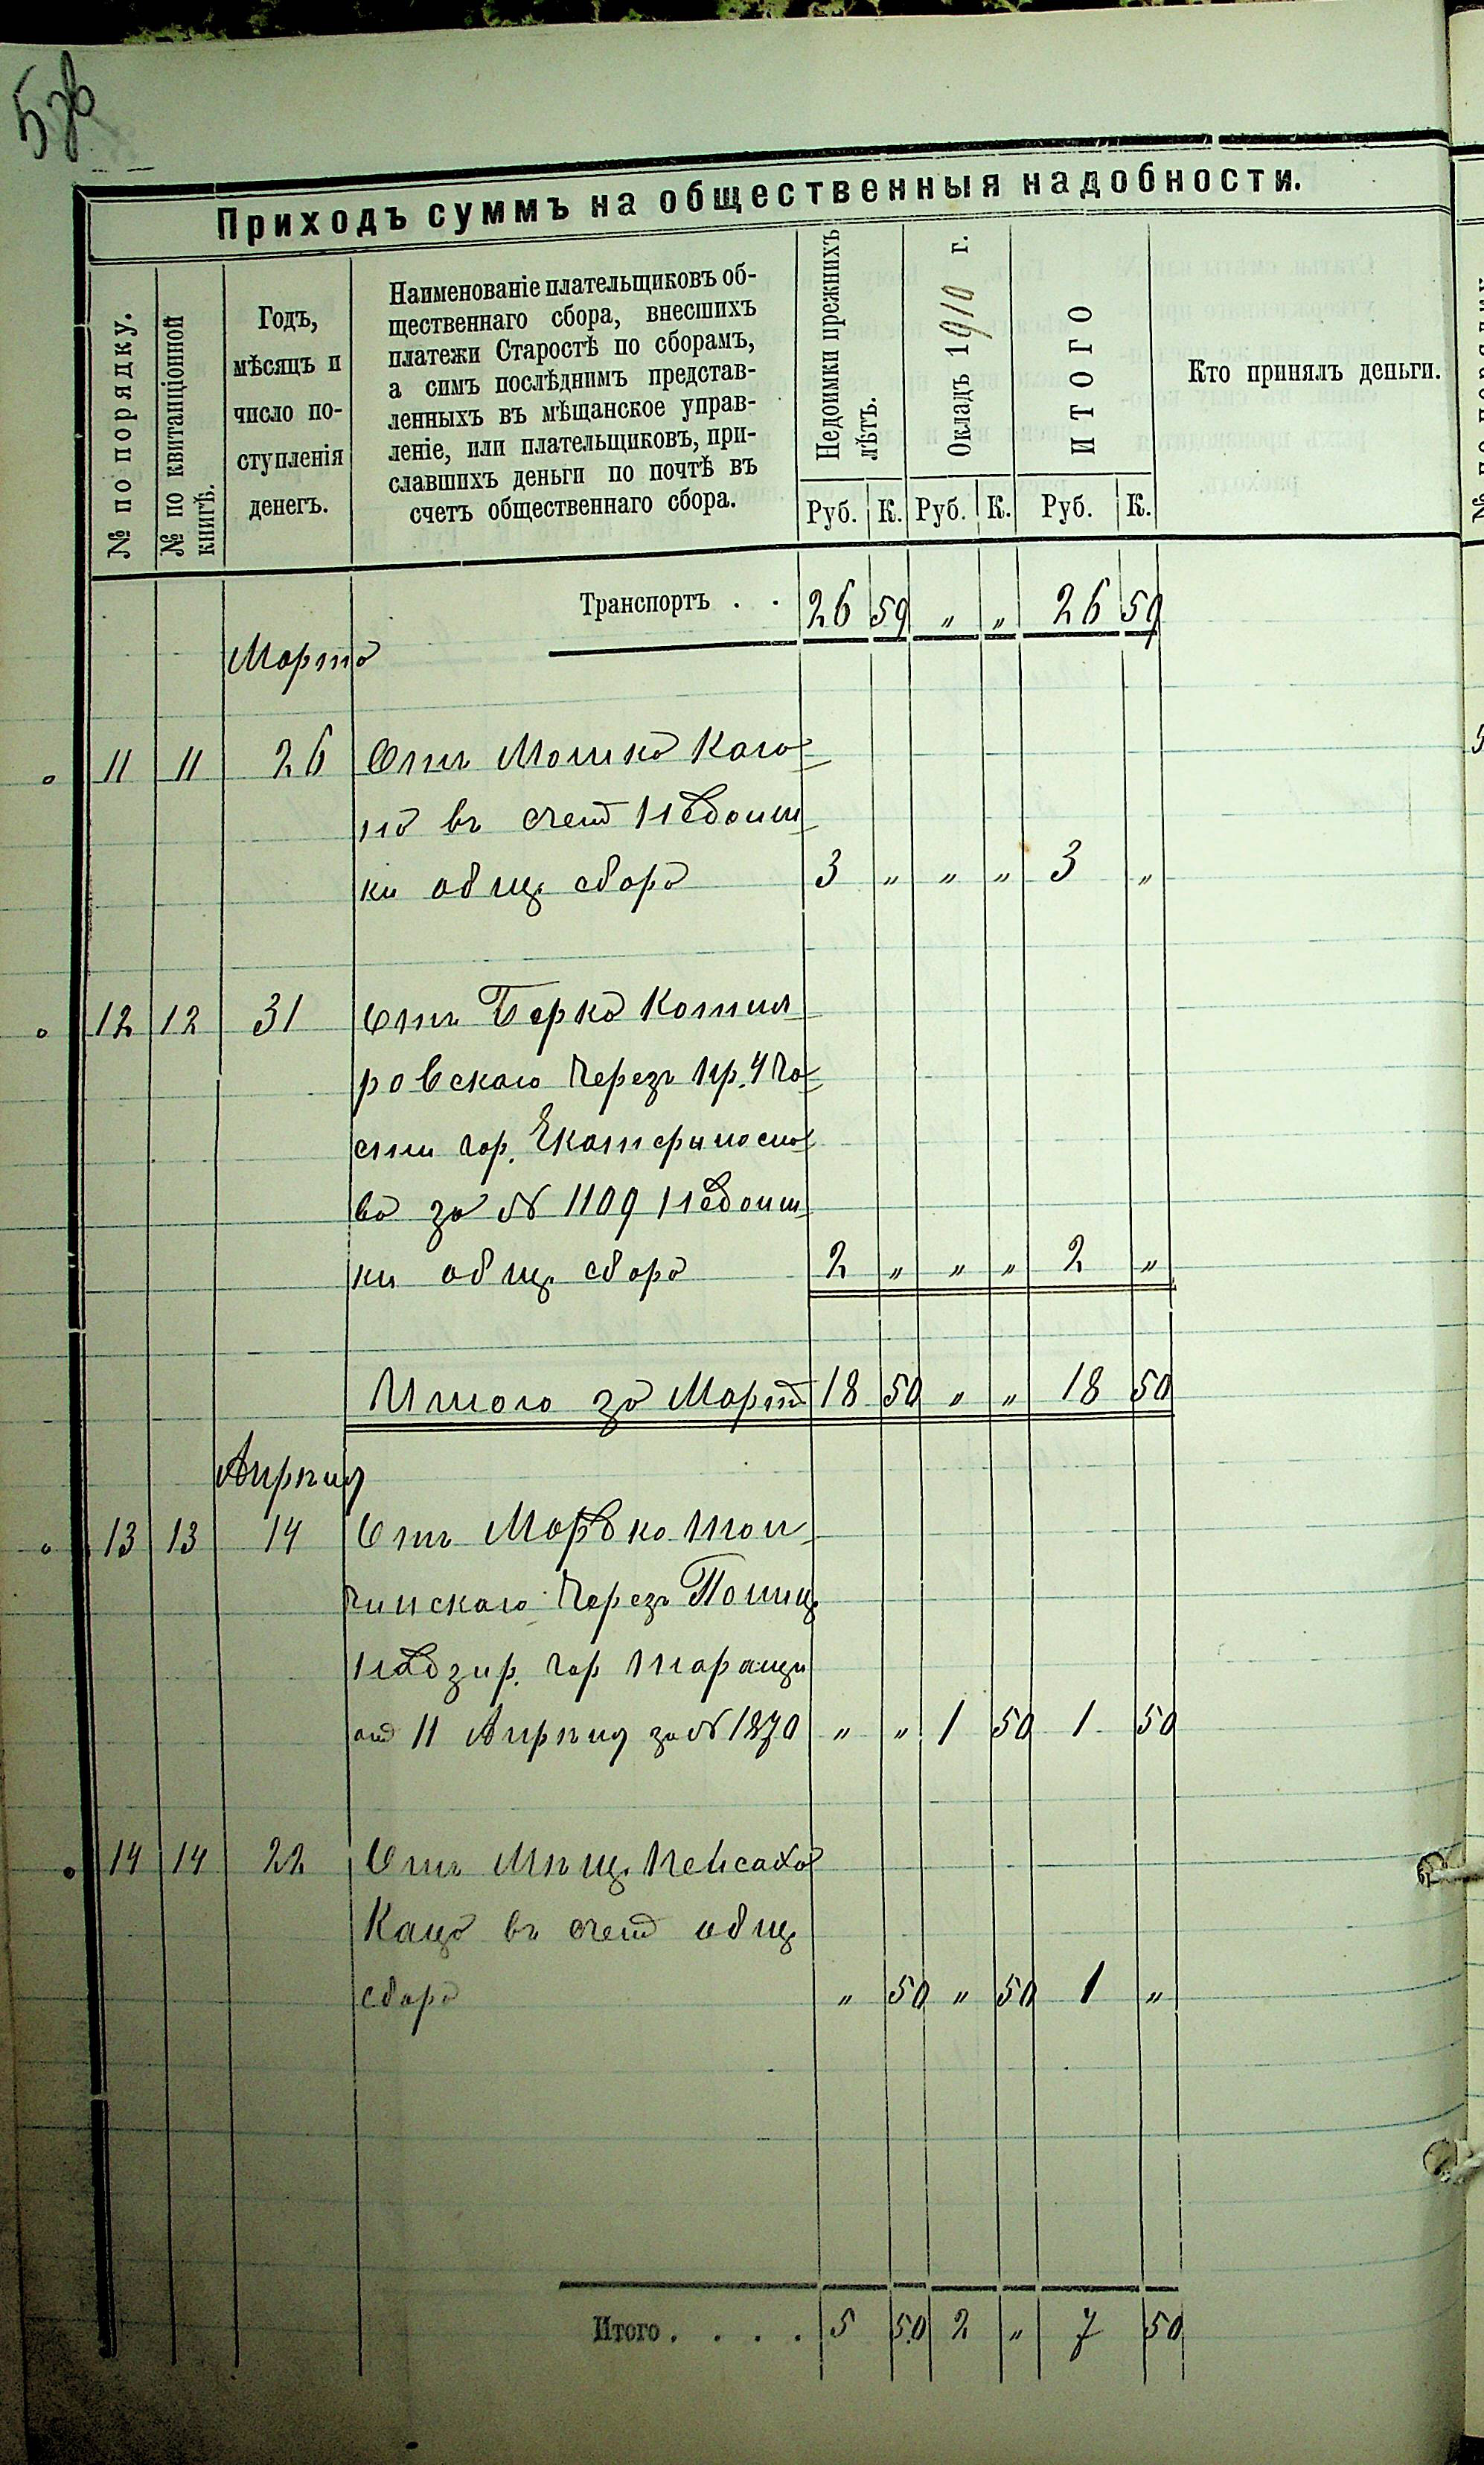 Приходъ суммъ на общественныя надобности.
№ по порядку.
№ по квитанціонной
книгѣ.
Годъ,
мѣсяцъ и
число по-
ступленія
денегъ.
Наименованіе плательщиковъ об-
щественнаго сбора, внесшихъ
платежи Старостѣ по сборамъ,
а симъ послѣднимъ представ-
ленныхъ въ мѣщанское управ-
леніе, или плательщиковъ, при-
славшихъ деньги по почтѣ въ
счетъ общественнаго сбора.
Недоимки прежнихъ
лѣтъ.
Окладъ 1910 г.
ИТОГО
Кто принялъ деньги.
Руб. К. Руб. К. Руб. К.
Транспортъ . . 26 59 „ „ 26 59
Марта
11 11 26 Отъ Мошка Кага-
на въ счет недоим
ки общ. сбора 3 „ „ „ 3 „
12 12 31 Отъ Берка Котля
ровскаго через пр. 4 ча-
сти гор. Екатериносла-
ва за № 1109 недоим
ки общ. сбора 2 „ „ „ 2 „
Итого за Март 18 50 „ „ 18 50
Апрѣля
13 13 14 Отъ Мордко
чинскаго через Полиц.
надзир. гор Таращи
от 11 Апрѣля за № 1870 „ „ 1 50 1 50
14 14 22 Отъ Мѣщ. Пейсаха
Каца въ счет общ.
сбора „ 50 „ 50 1 „
Итого . . . . 5 50 2 „ 7 50